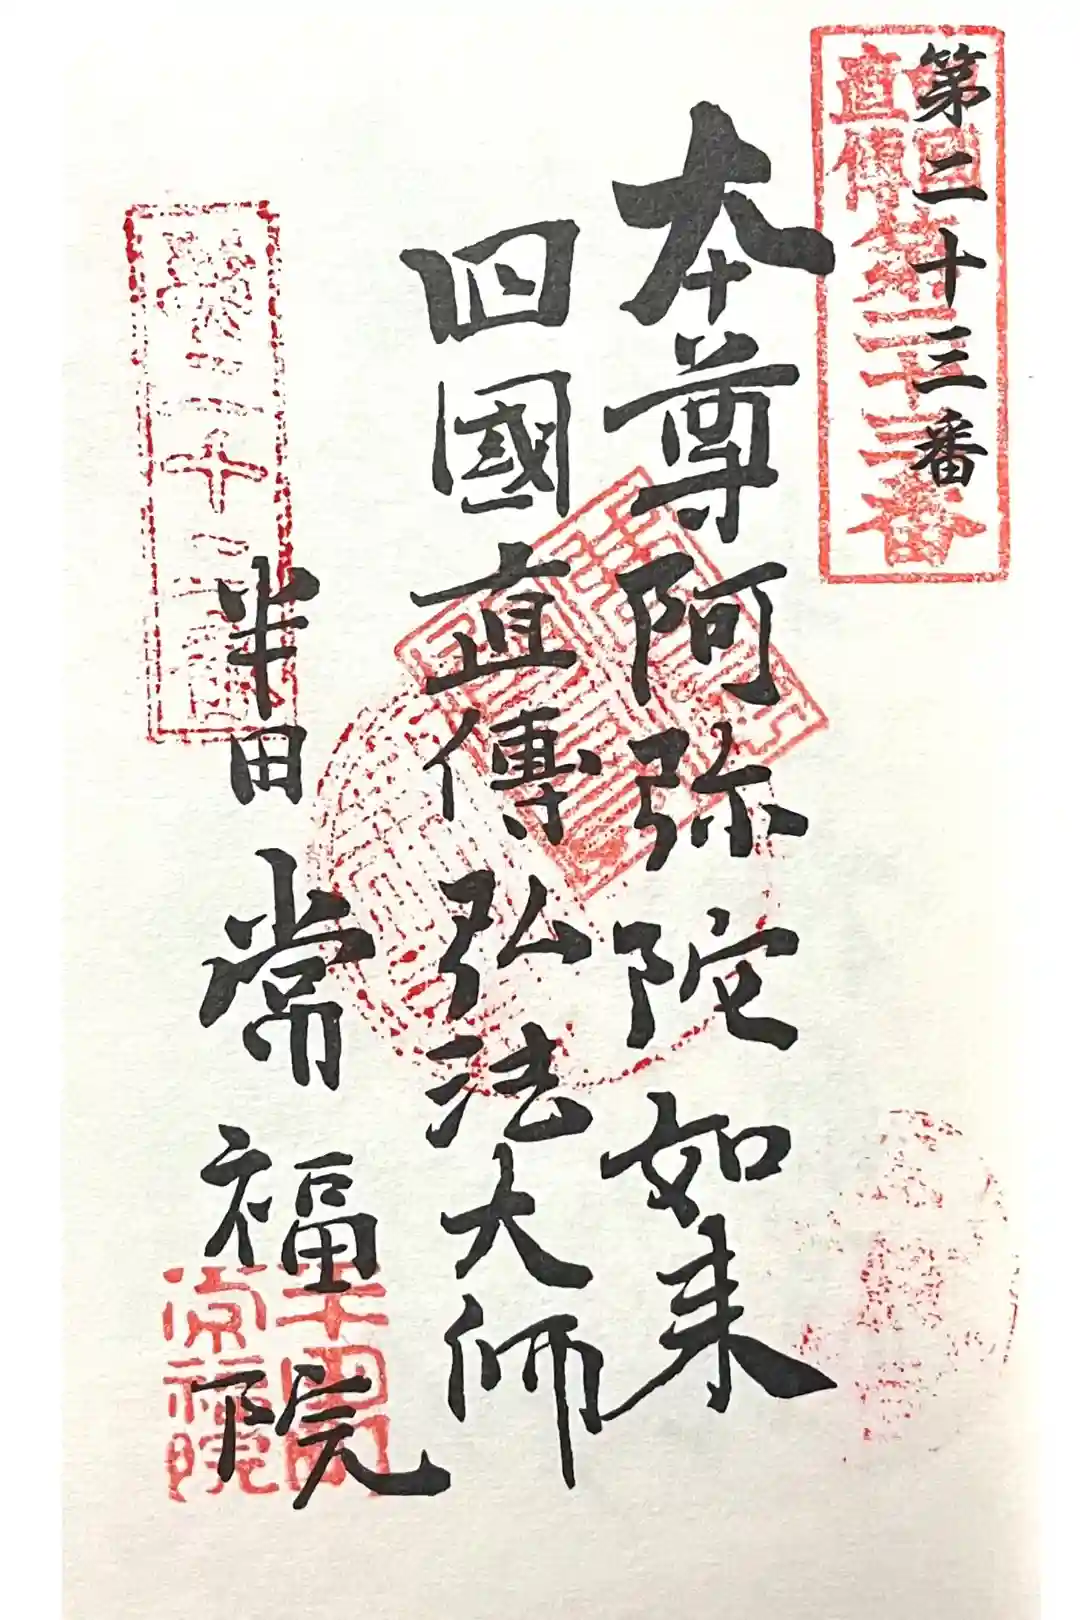 第二十三番
四國直傳第二十三番
本尊阿弥陀如来
四國直傳弘法大師
半田常福院
第二十三番
半田常福院